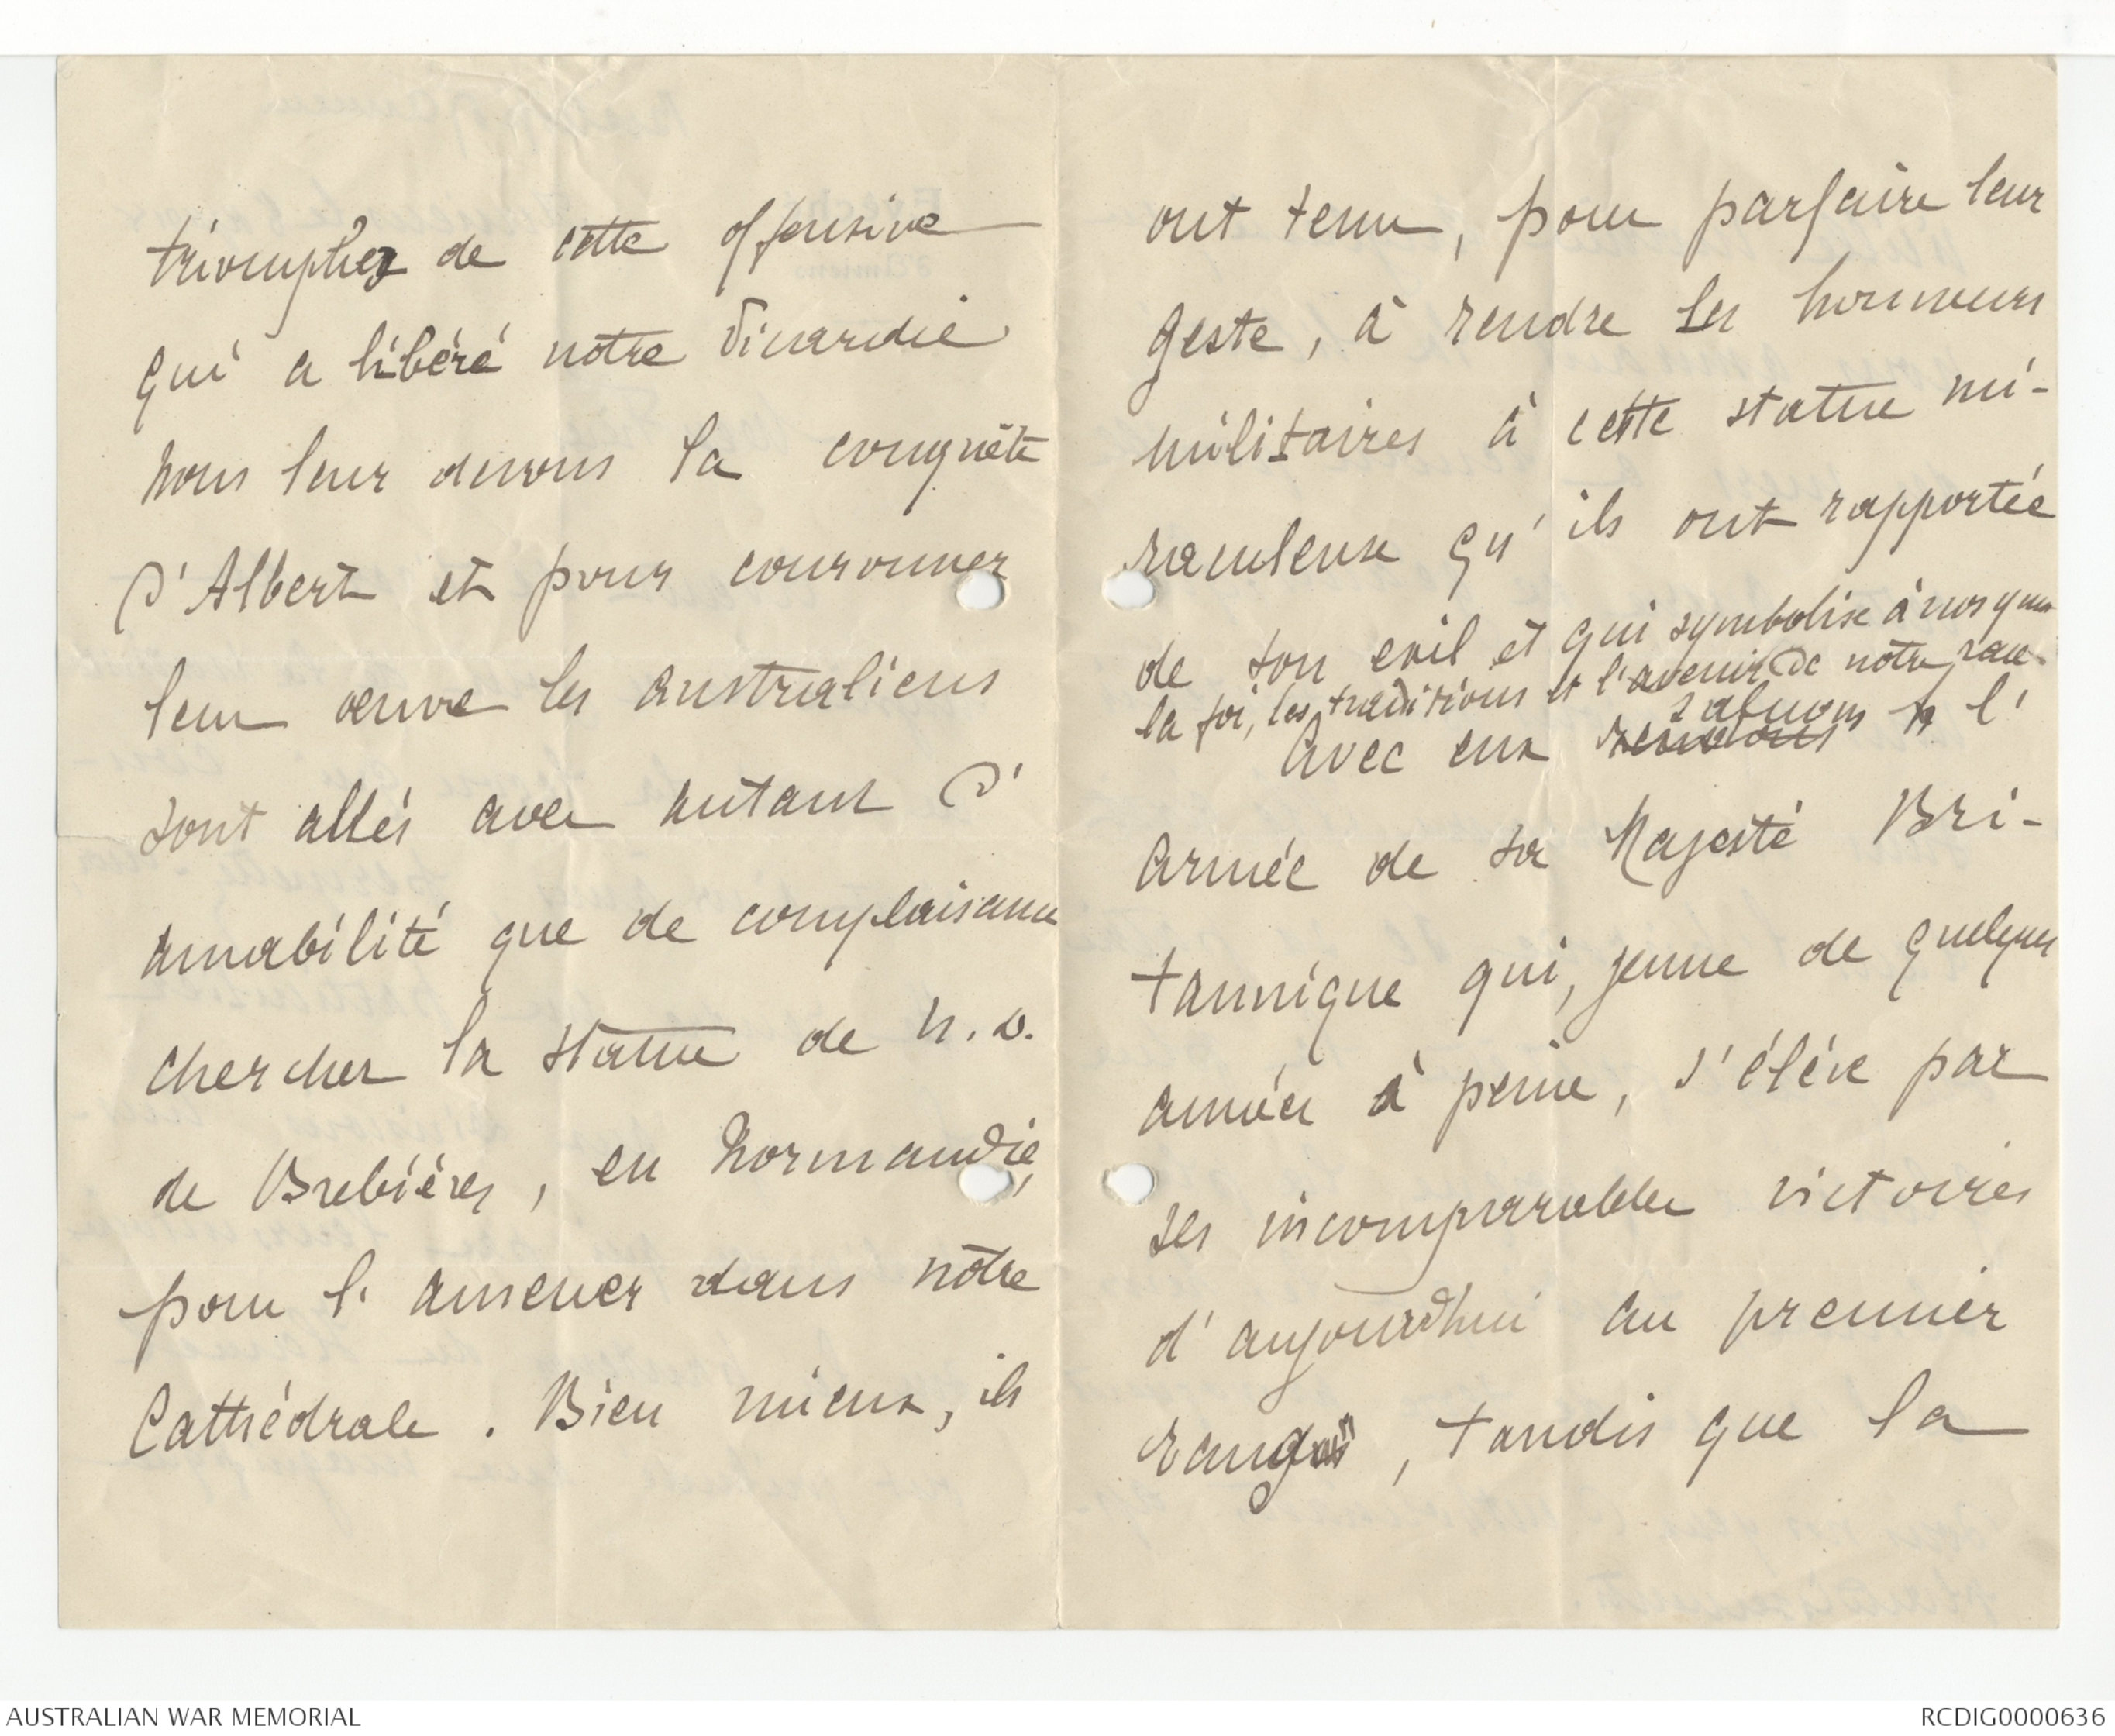 triomphes de cette offensive
qui a libéré notre Picardie
nous leur devons la conquête
d'Albert et pour couronner
leur œuvre les australiens
sont allés avec autant d'
amabilité que de complaisance
chercher la statue de N. D.
de Brebières, en Normandie,
pour l'amener dans notre
Cathédrale. Bien mieux, ils
ont tenu, pour parfaire leur
geste, à rendre les honneurs
militaires à cette statue mi-
raculeuse qu'ils ont rapportée
de son exil et qui symbolise à nos yeux
la foi, les traditions et l'avenir de notre race.
saluons
Avec eux l'
armée de sa Majesté Bri-
tannique qui, jeune de quelques
années à peine, s'élève par
ses incomparables victoires
d'aujourdhui au premier
rang, tandis que la
AUSTRALIAN WAR MEMORIAL
RCDIG0000636